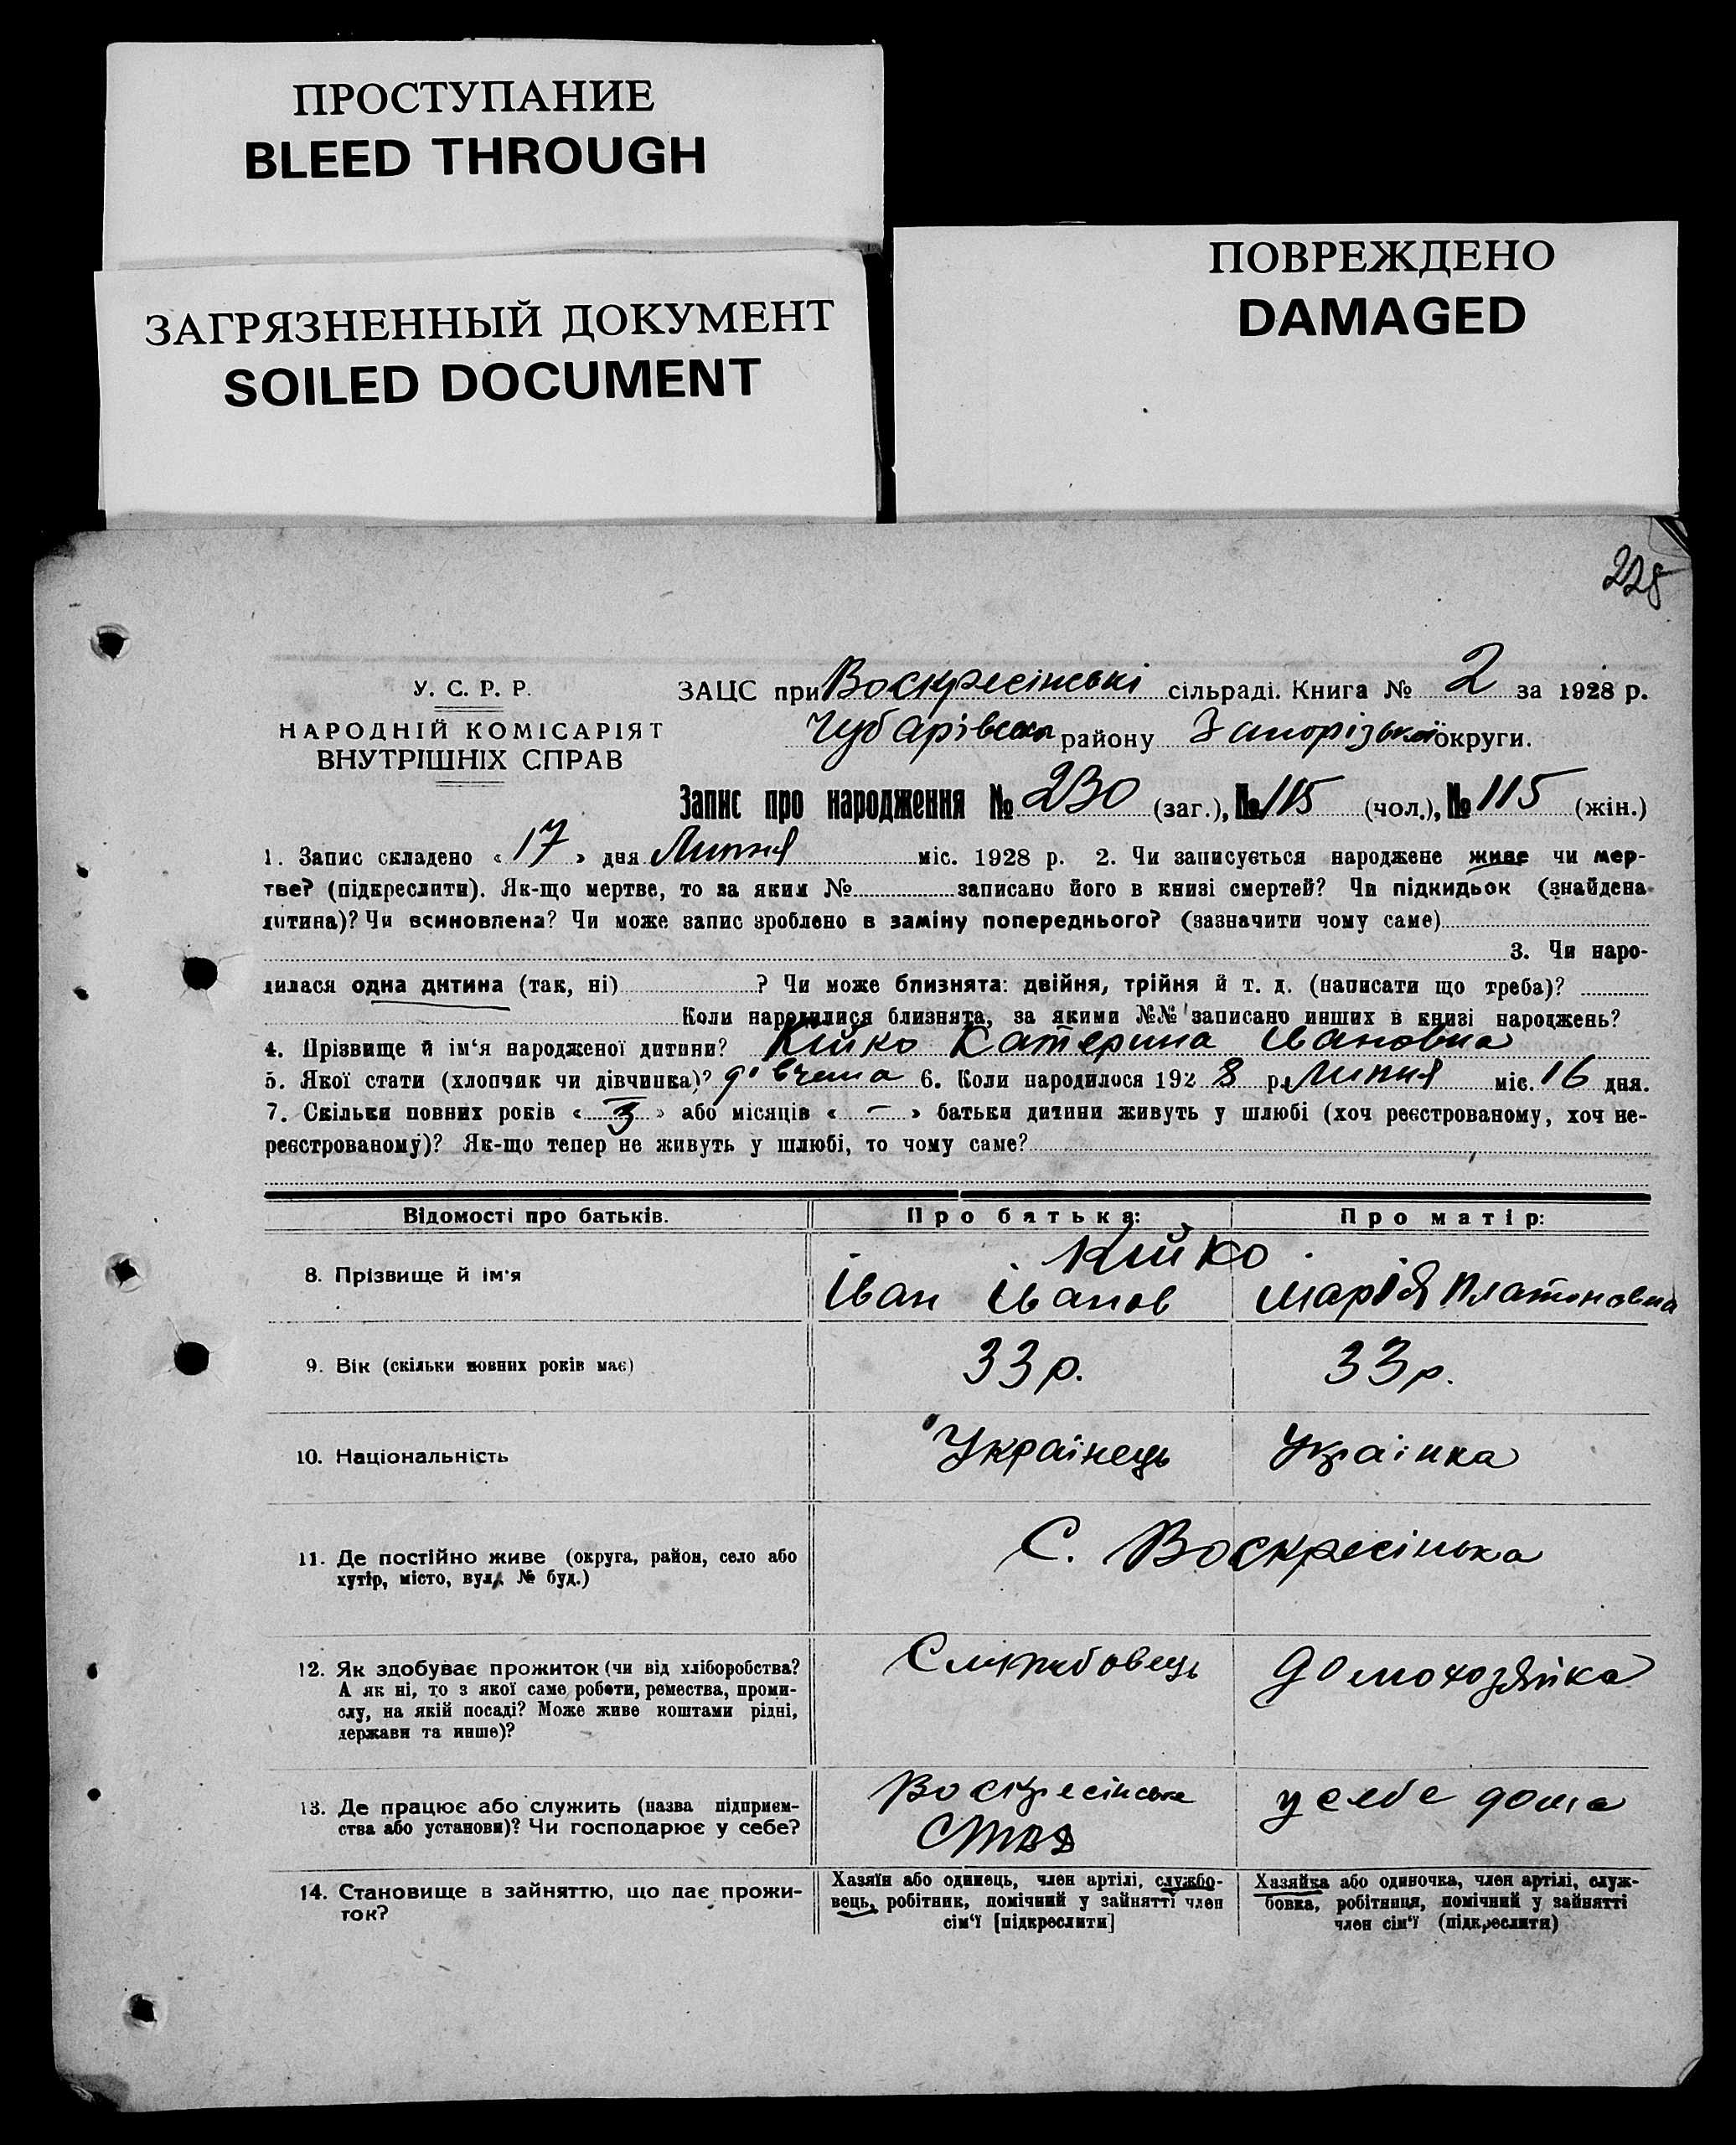 ПРОСТУПАНИЕ
BLEED THROUGH
ЗАГРЯЗНЕННЫЙ ДОКУМЕНТ
SOILED DOCUMENT
ПОВРЕЖДЕНО
DAMAGED
228
У. С. Р. Р.
НАРОДНІЙ КОМІСАРІЯТ
ВНУТРІШНІХ СПРАВ
ЗАЦС при Воскресінські сільраді. Книга № 2 за 1928 р.
Чубарівська району Запорізької округи.
Запис про народження № 230 (заг.), № 115 (чол.), № 115 (жін.)
1. Запис складено « 17 » дня Липня міс. 1928 р. 2. Чи записується народжене живе чи мер-
тве? (підкреслити). Як-що мертве, то за яким № записано його в книзі смертей? Чи підкидьок (знайдена
дитина)? Чи всиновлена? Чи може запис зроблено в заміну попереднього? (зазначити чому саме)
3. Чи наро-
дилася одна дитина (так, ні) ? Чи може близнята: двійня, трійня й т. д. (написати що треба)?
Коли народилися близнята, за якими №№ записано инших в книзі народжень?
4. Прізвище й ім'я народженої дитини? Кийко Катерина Івановна
5. Якої стати (хлопчик чи дівчинка)? дівчина 6. Коли народилося 1928 р. Липня міс. 16 дня.
7. Скільки повних років « 3 » або місяців « – » батьки дитини живуть у шлюбі (хоч реєстрованому, хоч не-
реєстрованому)? Як-що тепер не живуть у шлюбі, то чому саме?
Відомості про батьків. Про батька: Про матір:
Кийко
8. Прізвище й ім'я Іван Іванов Марія Платоновна
9. Вік (скільки повних років має) 33 р. 33 р.
10. Національність Українець Українка
11. Де постійно живе (округа, район, село або
хутір, місто, вул., № буд.) С. Воскресінька
12. Як здобуває прожиток (чи від хліборобства?
А як ні, то з якої саме роботи, ремества, проми-
слу, на якій посаді? Може живе коштами рідні,
держави та инше)?
Службовець Домохозяйка
13. Де працює або служить (назва підприєм-
ства або установи)? Чи господарює у себе?
Воскресінське у себе дома
14. Становище в зайняттю, що дає прожи-
ток?
Хазяїн або одинець, член артілі, службо-
вець, робітник, помічний у зайнятті член
сім'ї [підкреслити]
Хазяйка або одиночка, член артілі, служ-
бовка, робітниця, помічний у зайнятті
член сім'ї (підкреслити)